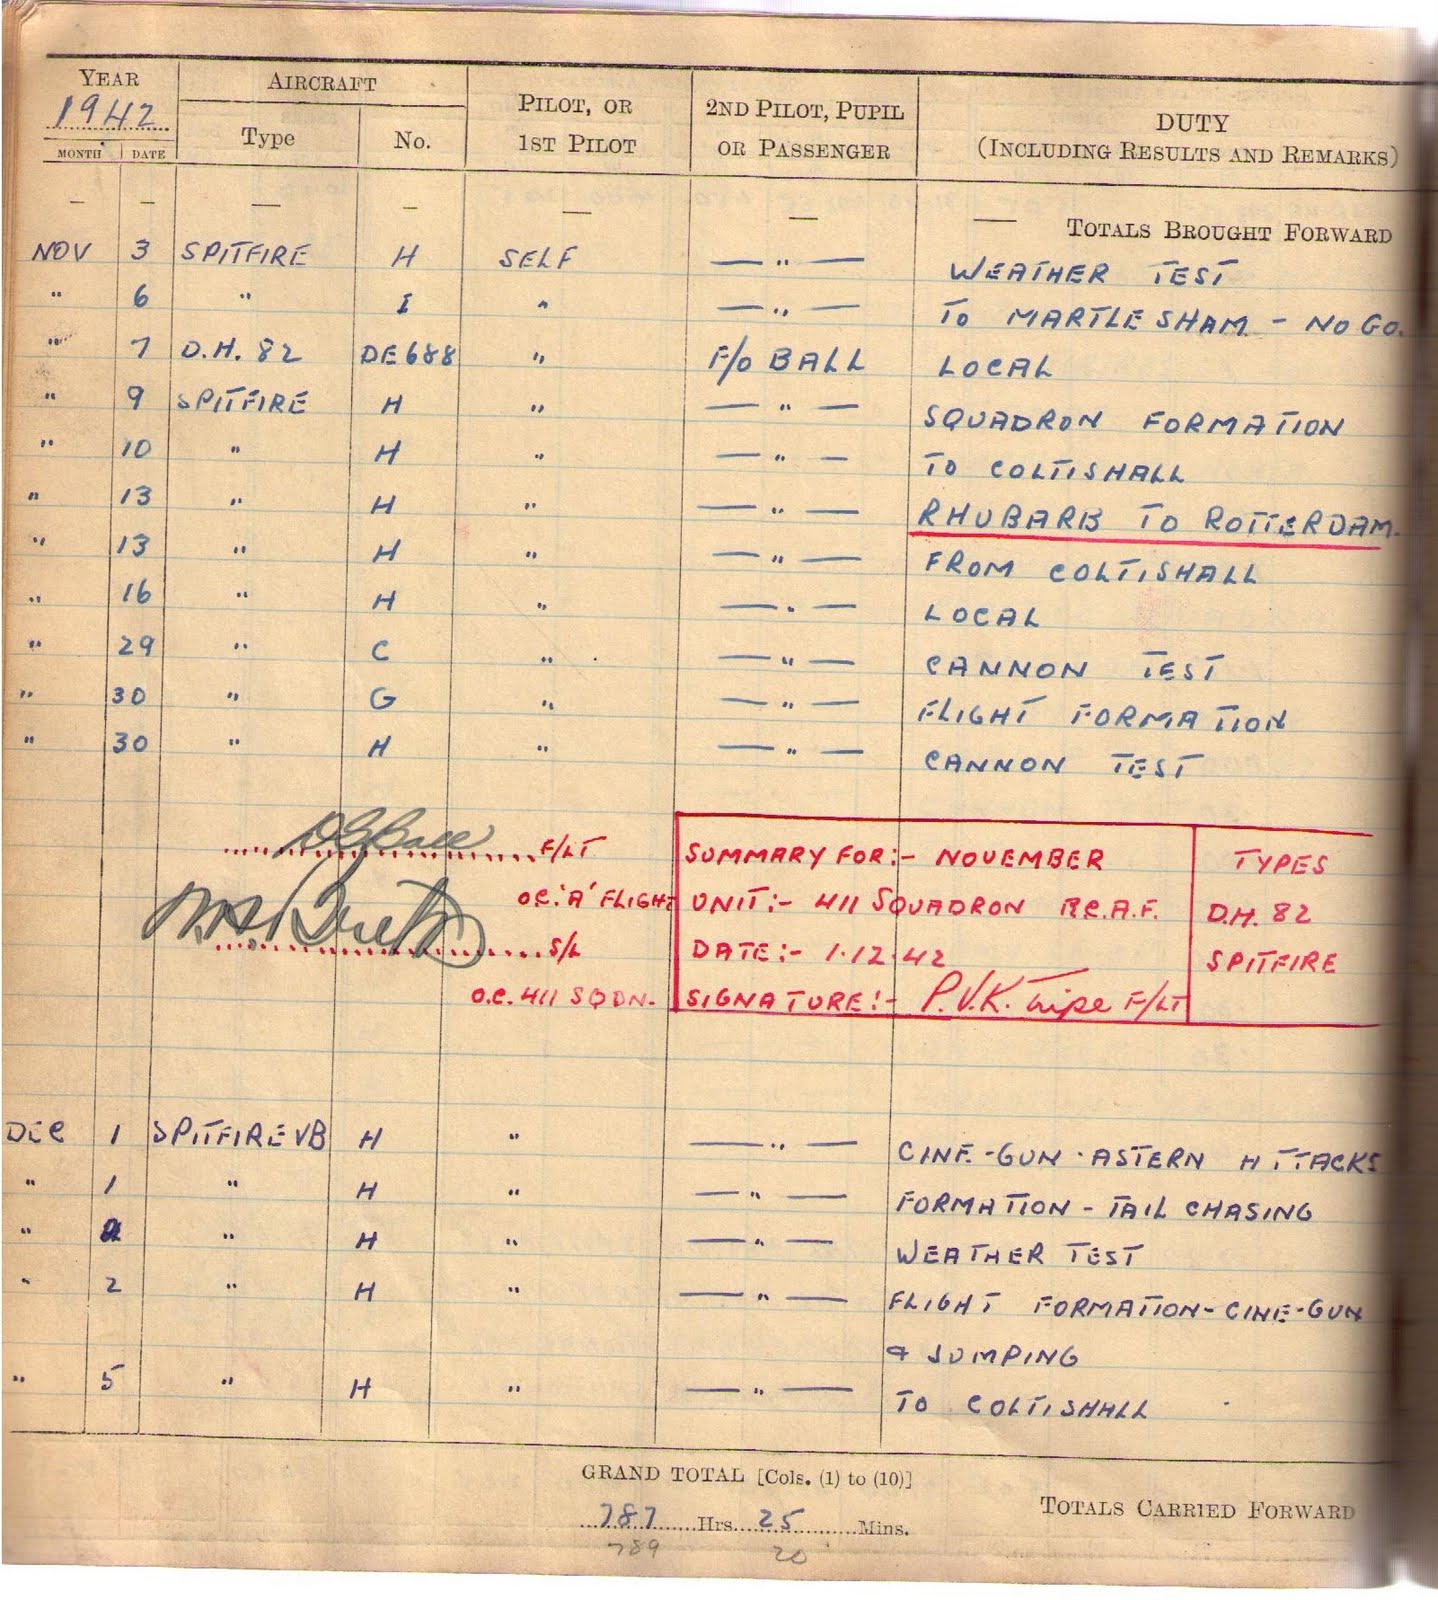 YEAR AIRCRAFT PILOT, OR 2ND PILOT, PUPIL DUTY
1942 Type No. 1ST PILOT OR PASSENGER (INCLUDING RESULTS AND REMARKS)
MONTH DATE
— — — — — — — TOTALS BROUGHT FORWARD
NOV 3 SPITFIRE H SELF — " — WEATHER TEST
" 6 " I " — " — TO MARTLESHAM - NO GO.
" 7 D.H. 82 DE688 " F/O BALL LOCAL
" 9 SPITFIRE H " — " — SQUADRON FORMATION
" 10 " H " — " — TO COLTISHALL
" 13 " H " — " — RHUBARB TO ROTTERDAM.
" 13 " H " — " — FROM COLTISHALL
" 16 " H " — " — LOCAL
" 29 " C " — " — CANNON TEST
" 30 " G " — " — FLIGHT FORMATION
" 30 " H " — " — CANNON TEST
F/LT
O.C. 'A' FLIGHT
S/L
O.C. 411 SQDN.
SUMMARY FOR:- NOVEMBER TYPES
UNIT:- 411 SQUADRON R.C.A.F. D.H. 82
DATE:- 1.12.42 SPITFIRE
SIGNATURE:- P.V.K. Tripe F/LT
DEC 1 SPITFIRE VB H " — " — CINE-GUN-ASTERN ATTACKS
" 1 " H " — " — FORMATION - TAIL CHASING
" 2 " H " — " — WEATHER TEST
" 2 " H " — " — FLIGHT FORMATION - CINE-GUN
& JUMPING
" 5 " H " — " — TO COLTISHALL
GRAND TOTAL [Cols. (1) to (10)]
787 Hrs. 25 Mins. TOTALS CARRIED FORWARD
789 20